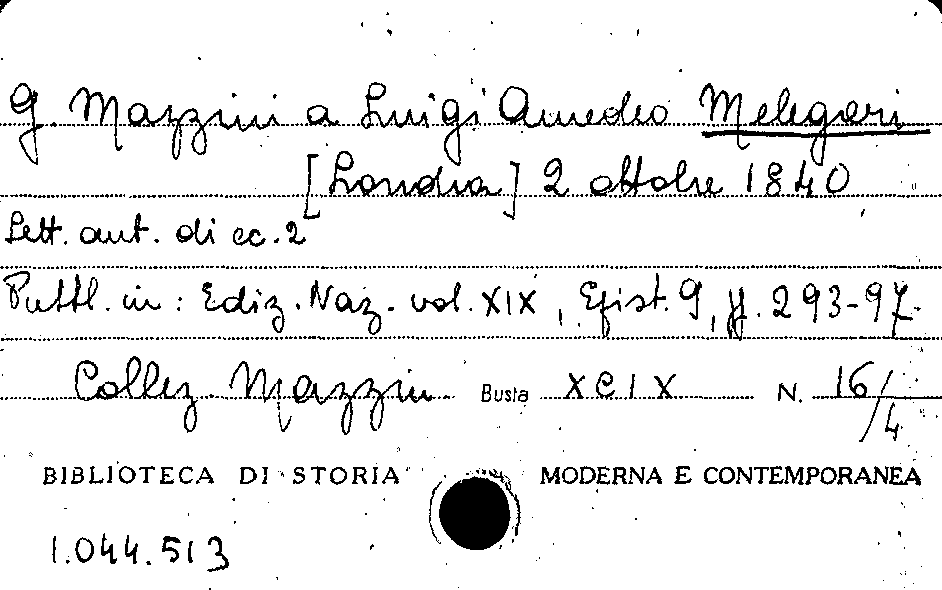 G. Mazzini a Luigi Amedeo Melegari
[Londra] 2 ottobre 1840
Lett. aut. di cc. 2
Pubbl. in: Ediz. Naz. vol. XIX, Epist. 9, p. 293-97.
Collez. Mazzini Busta XCIX N. 16/4
BIBLIOTECA DI STORIA MODERNA E CONTEMPORANEA
1.044.513